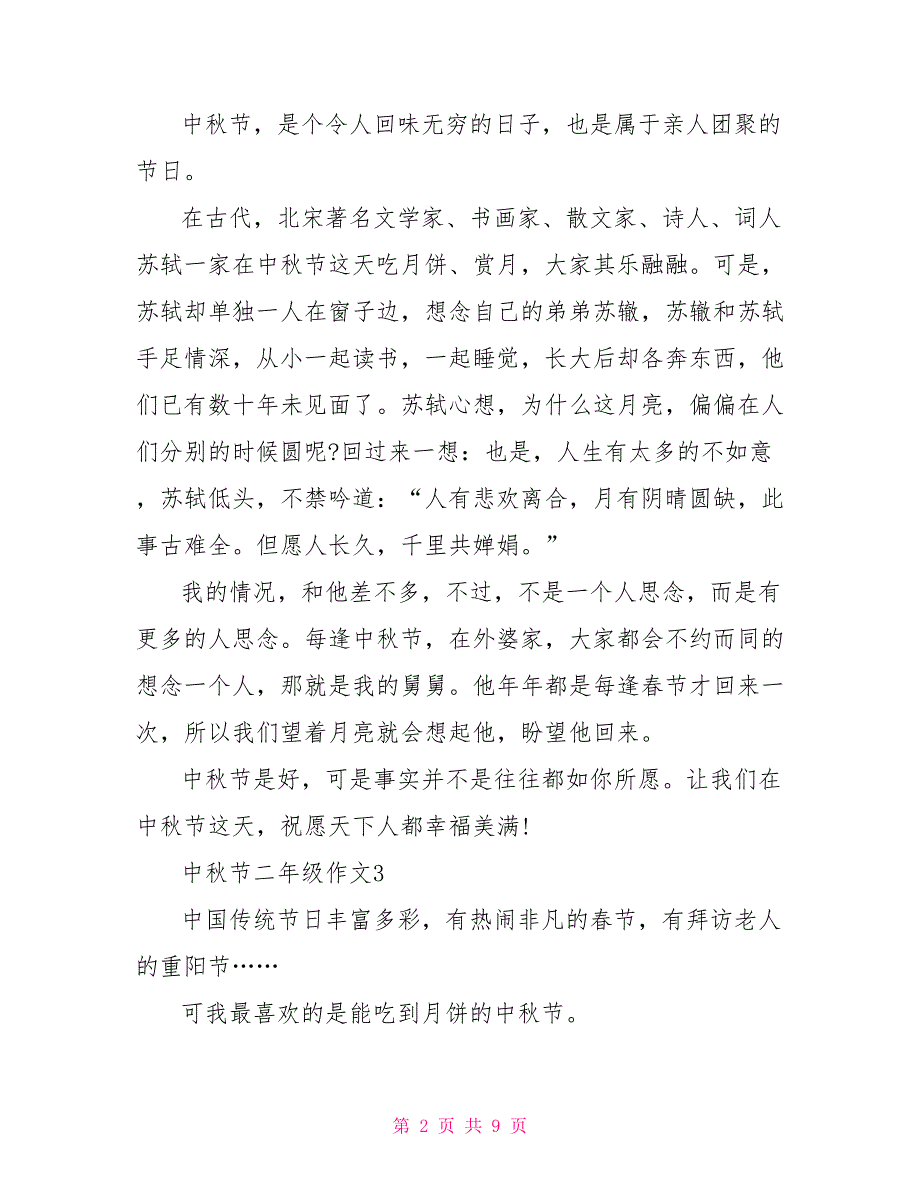 中秋节，是个令人回味无穷的日子，也是属于亲人团聚的
节日。
在古代，北宋著名文学家、书画家、散文家、诗人、词人
苏轼一家在中秋节这天吃月饼、赏月，大家其乐融融。可是，
苏轼却单独一人在窗子边，想念自己的弟弟苏辙，苏辙和苏轼
手足情深，从小一起读书，一起睡觉，长大后却各奔东西，他
们已有数十年未见面了。苏轼心想，为什么这月亮，偏偏在人
们分别的时候圆呢?回过来一想：也是，人生有太多的不如意
，苏轼低头，不禁吟道：“人有悲欢离合，月有阴晴圆缺，此
事古难全。但愿人长久，千里共婵娟。”
我的情况，和他差不多，不过，不是一个人思念，而是有
更多的人思念。每逢中秋节，在外婆家，大家都会不约而同的
想念一个人，那就是我的舅舅。他年年都是每逢春节才回来一
次，所以我们望着月亮就会想起他，盼望他回来。
中秋节是好，可是事实并不是往往都如你所愿。让我们在
中秋节这天，祝愿天下人都幸福美满!
中秋节二年级作文3
中国传统节日丰富多彩，有热闹非凡的春节，有拜访老人
的重阳节……
可我最喜欢的是能吃到月饼的中秋节。
第 2 页 共 9 页